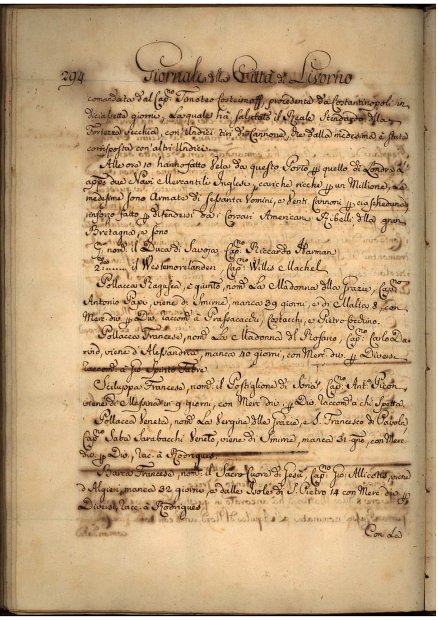 294
Giornale della Città di Livorno
comandata dal Capno Timoteo procedente da Costantinopoli in
diciasette giorni, la quale hà salutato il Reale Stendardo della
Fortezza Vecchia, con Undici tiri di Cannone, che dalla medesima è stata
corrisposta con altri Undici.
Alle ore 10 hanno fatto Vela da questo Porto per quello di Londra
due Navi Mercantili Inglesi, cariche ricche per un Milione, Le
medesime sono Armate di sessanta Uomini, e Venti Cannoni per ciascheduna,
fatto per difendersi dai Corsari Americani Ribelli della gran
Bretagna, e sono
nom: il Duca di Savoja Capno Riccardo Harman
2:....... il Westemorlanden Capno Willis Machel
Pollacca Ragusea, e quinto, nom: La Madonna delle Grazie, Capno
Antonio Pape, viene di Smirne, manca 39 giorni, e di Malta 8, con
Merc: div: per Div: raccom: à e Pietro
Pollacca Francese, nom: La Madonna del Rosario, Capno Carlo
viene d'Alessandria, manca 40 giorni, con Merc: div: per Diversi
raccom: à Gio: Spirito
Sciluppa Francese, nom: il Postiglione di Capno Antno
viene di Messina in 9 giorni, con Merc: div: per Div: raccom: à chi Spetta
Pollacca Veneta, nom: La Vergine delle Grazie, e S. Francesco di Paola
Capno Saba Sarabacchi Veneto, viene di Smirne, manca 31 gno, con Merc:
div: per Div: rac: à Rodrigues
Barca Francese, nom: il Sacro Cuore di Gesù, Capno Gio: viene
d'Algieri, manca 32 giorni, e dalle Isole di S. Pietro 14 con Merc: div: per
Diversi, racc: à Rodrigues
Con Le